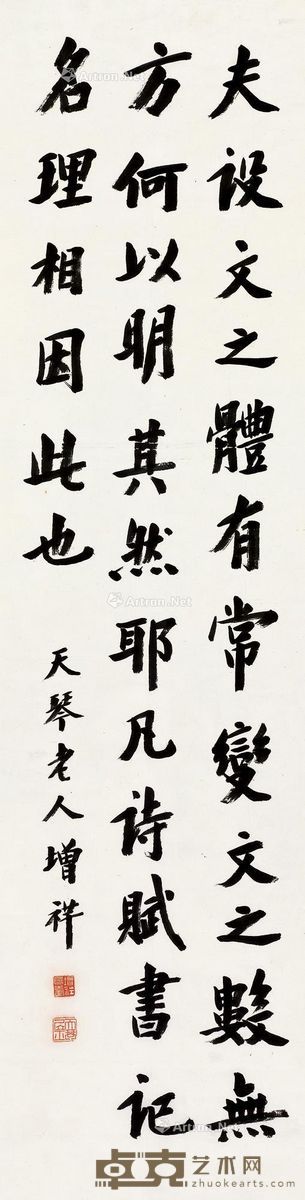 夫設文之體有常變文之數無
方何以明其然耶凡詩賦書記
名理相因此也
天琴老人增祥
Artron.Net
Artron.Net
Artron.Net
卓克艺术网
zhuokearts.com